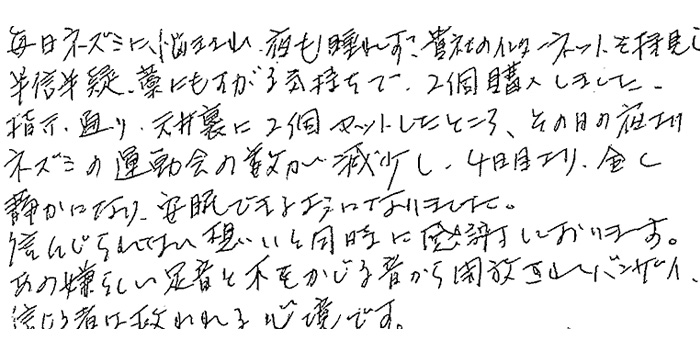 毎日ネズミに、悩まされ、夜も眠れず、貴社のインターネットを拝見し
半信半疑、藁にもすがる気持ちで、2個購入しました。
指示通り、天井裏に2個セットしたところ、その日の夜より
ネズミの運動会の数が減少し、4日目より、全く
静かになり、安眠できるようになりました。
信じられない想いと同時に感謝しております。
あの嫌らしい足音と木をかじる音から開放されバンザイ、
信じる者は救われる心境です。